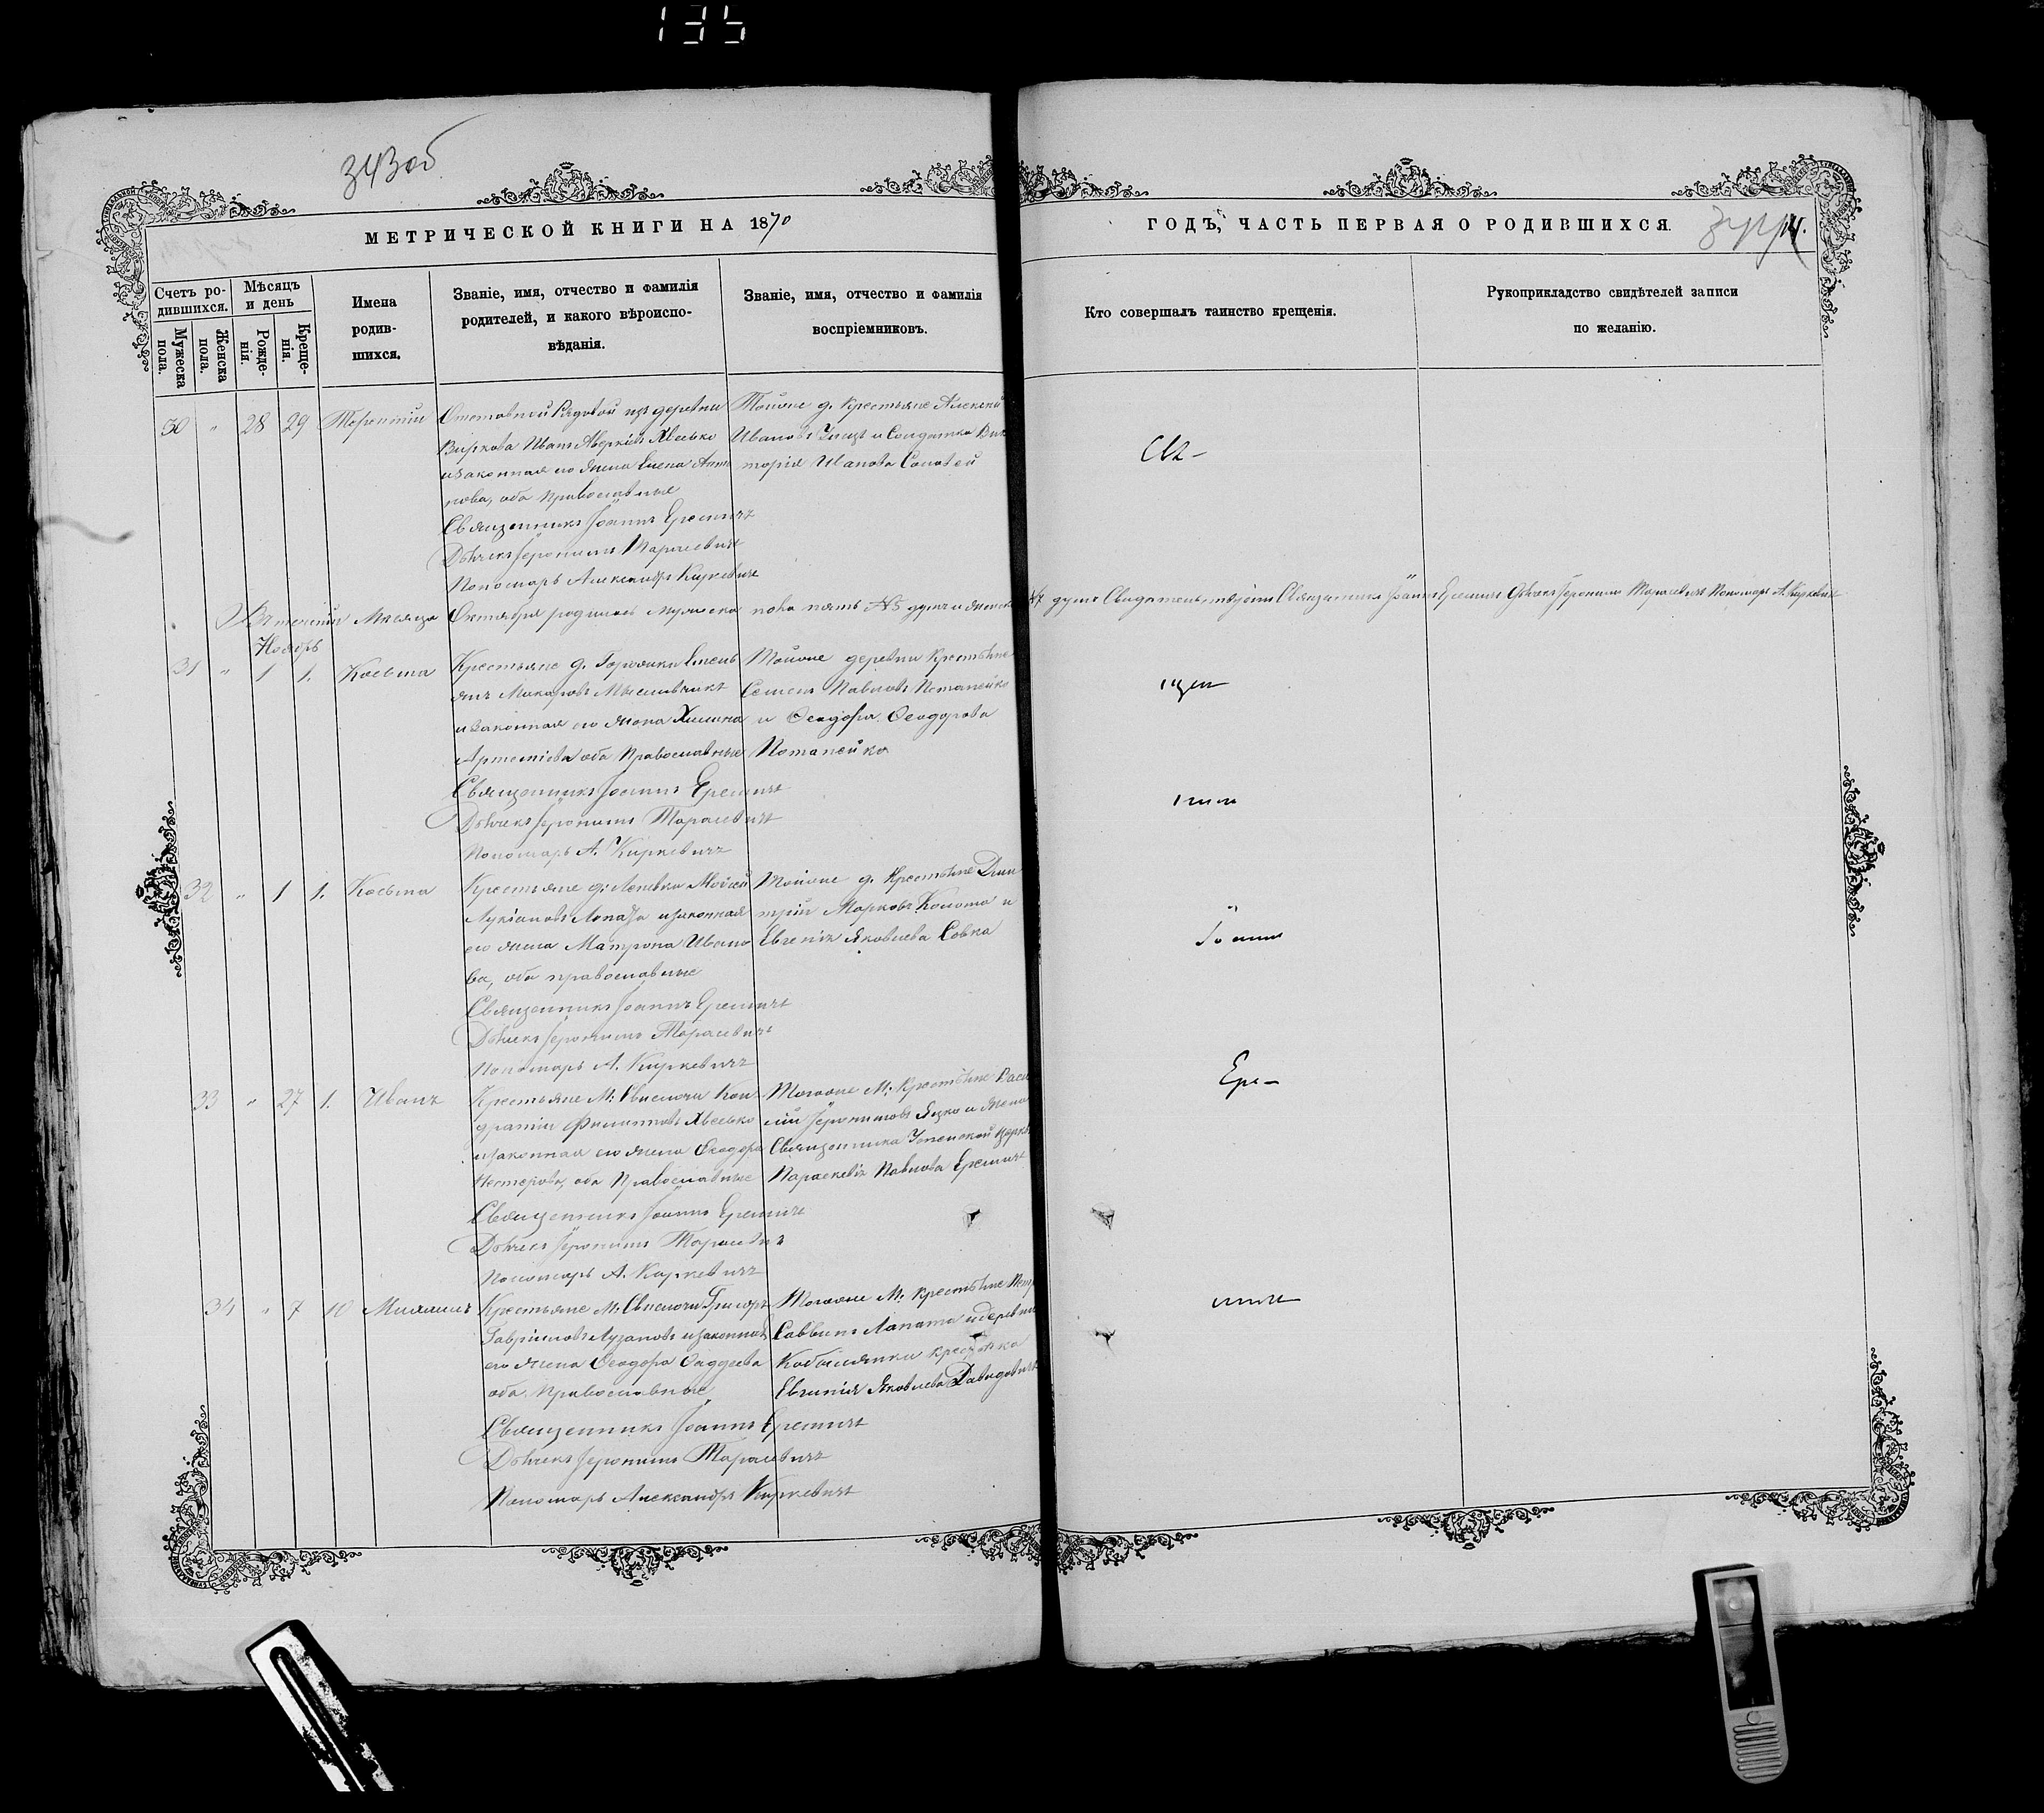 135
343 об
МЕТРИЧЕСКОЙ КНИГИ НА 1870
ГОДЪ, ЧАСТЬ ПЕРВАЯ О РОДИВШИХСЯ.
Счетъ родившихся.
Мужеска пола.
Женска пола.
Мѣсяцъ и день
Рожденія.
Крещенія.
Имена родившихся.
Званіе, имя, отчество и фамилія родителей, и какого вѣроисповѣданія.
Званіе, имя, отчество и фамилія воспріемниковъ.
Кто совершалъ таинство крещенія.
Рукоприкладство свидѣтелей записи по желанію.
30 " 28 29 Терентій
Отставной Рядовой изъ деревни
Виркова Иванъ Аверкіевъ Хвесько
и законная его жена Елена
нова, оба православные
Священникъ Іоаннъ Еремичъ
Дьячекъ Іеронимъ Тарасевичъ
Пономарь Александръ Киркевичъ
Тойже д. Крестьяне Алексей
Ивановъ и Солдатка Вик
торія Иванова
Свя-
Въ теченіи Месяца Октября родилось мужеска пола пять №5 душъ и женска
душъ Свидетельствуемъ Священникъ Іоаннъ Еремичъ Дьячекъ Іеронимъ Тарасевичъ Пономарь А. Киркевичъ
Ноябрь
31 " 1 1. Косьма
Крестьяне д. Емель
янъ Макаровъ
и законная его жена
Артеміева оба Православные
Священникъ Іоаннъ Еремичъ
Дьячекъ Іеронимъ Тарасевичъ
Пономарь А. Киркевичъ
Тойже деревни Крестьяне
Семенъ Павловъ Потапейко
и Ѳеодора Ѳеодорова
Потапейко
щен
никъ
32 " 1 1. Косьма
Крестьяне д. Лепевка Мойсей
Лукіановъ Лапата и законная
его жена Матрона Ивано
ва, оба православные
Священникъ Іоаннъ Еремичъ
Дьячекъ Іеронимъ Тарасевичъ
Пономарь А. Киркевичъ
Тойже д. Крестьяне Дми
трій Марковъ и
Евгенія Яковлева Совка
Іоаннъ
33 " 27 1. Иванъ
Крестьяне М. Свислочи Кон
дратій Филиповъ Хвесько
и законная его жена Ѳеодора
Нестерова, оба Православные
Священникъ Іоаннъ Еремичъ
Дьячекъ Іеронимъ Тарасевичъ
Пономарь А. Киркевичъ
Тогоже М. Крестьяне Васи
лій Іеронимовъ Яцко и жена
Священника Успенской церкви
Параскевія Павлова Еремичъ
Ере-
34 " 7 10 Михаилъ
Крестьяне М. Свислочи Григорій
Гавриловъ Лузановъ и законная
его жена Ѳеодора Ѳаддеева
оба Православные
Священникъ Іоаннъ Еремичъ
Дьячекъ Іеронимъ Тарасевичъ
Пономарь Александръ Киркевичъ
Тогоже М. Крестьяне Петръ
Саввинъ Лапата и деревни
Кобылянки крестьянка
Евгенія Яковлева Давидовичъ
мичъ